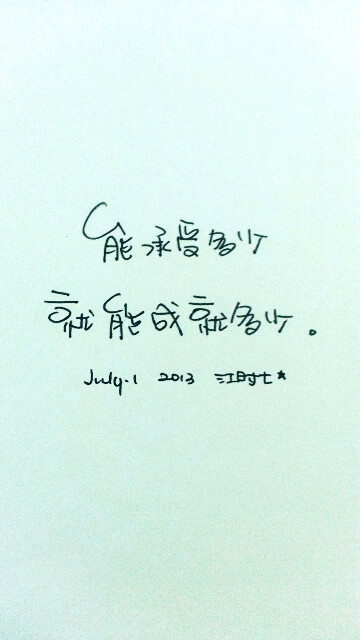 能承受多少
就能成就多少。
July.1 2013 江时七*